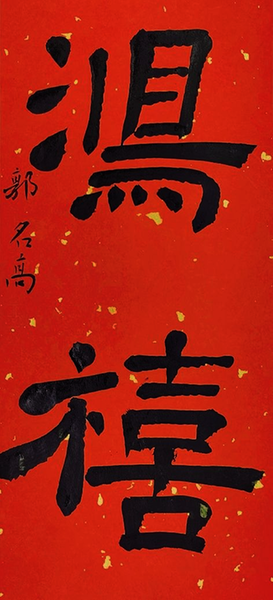 鴻禧
郭名高